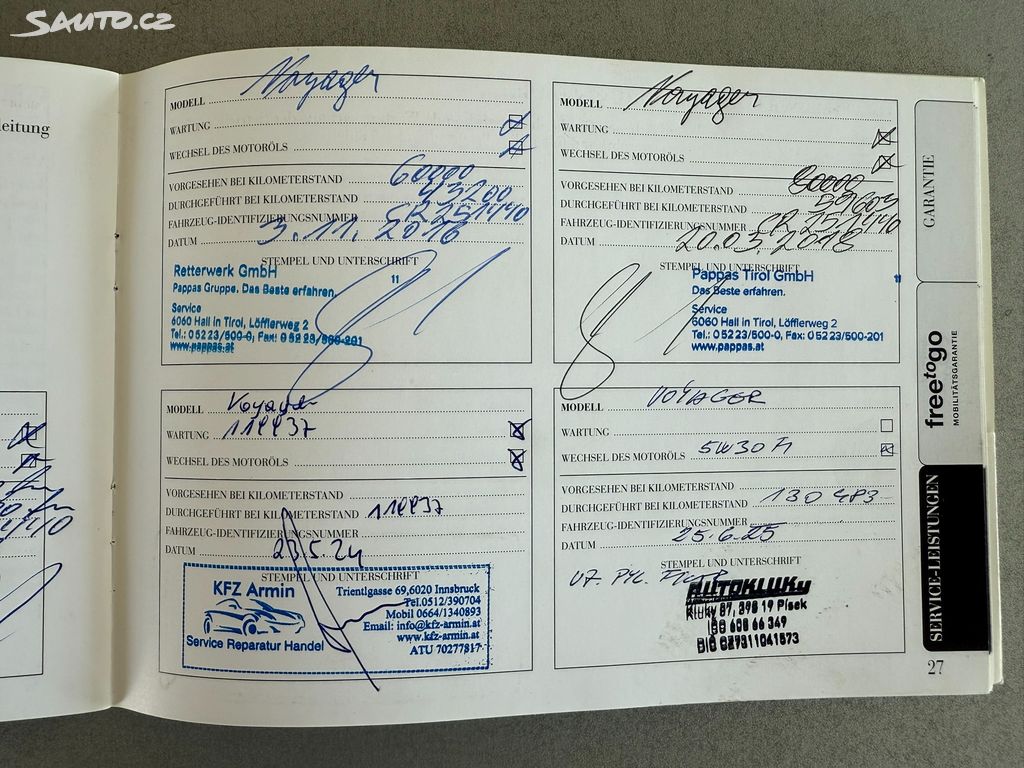 SAUTO.CZ
leitung
MODELL Voyager
WARTUNG
WECHSEL DES MOTORÖLS
VORGESEHEN BEI KILOMETERSTAND 60000
DURCHGEFÜHRT BEI KILOMETERSTAND 43200
FAHRZEUG-IDENTIFIZIERUNGSNUMMER CR 251440
DATUM 3.11.2016
STEMPEL UND UNTERSCHRIFT
Retterwerk GmbH 11
Pappas Gruppe. Das Beste erfahren.
Service
6060 Hall in Tirol, Löfflerweg 2
Tel.: 05223/500-0, Fax: 05223/500-201
www.pappas.at
MODELL Voyager
WARTUNG
WECHSEL DES MOTORÖLS
VORGESEHEN BEI KILOMETERSTAND 80000
DURCHGEFÜHRT BEI KILOMETERSTAND 59603
FAHRZEUG-IDENTIFIZIERUNGSNUMMER CR 251440
DATUM 20.03.2018
STEMPEL UND UNTERSCHRIFT
Pappas Tirol GmbH 11
Das Beste erfahren.
Service
6060 Hall in Tirol, Löfflerweg 2
Tel.: 05223/500-0, Fax: 05223/500-201
www.pappas.at
MODELL Voyager
WARTUNG
WECHSEL DES MOTORÖLS
VORGESEHEN BEI KILOMETERSTAND
DURCHGEFÜHRT BEI KILOMETERSTAND
FAHRZEUG-IDENTIFIZIERUNGSNUMMER
DATUM 23.5.24
STEMPEL UND UNTERSCHRIFT
KFZ Armin
Service Reparatur Handel
Trientlgasse 69,6020 Innsbruck
Tel.0512/390704
Mobil 0664/1340893
Email: info@kfz-armin.at
www.kfz-armin.at
ATU 70277817
MODELL VOYAGER
WARTUNG
WECHSEL DES MOTORÖLS 5W30
VORGESEHEN BEI KILOMETERSTAND
DURCHGEFÜHRT BEI KILOMETERSTAND 130 483
FAHRZEUG-IDENTIFIZIERUNGSNUMMER
DATUM 25.6.25
STEMPEL UND UNTERSCHRIFT
AUTOKLUKY
Kluky 87, 398 19 Písek
GARANTIE
freetogo
MOBILITÄTSGARANTIE
SERVICE-LEISTUNGEN
27